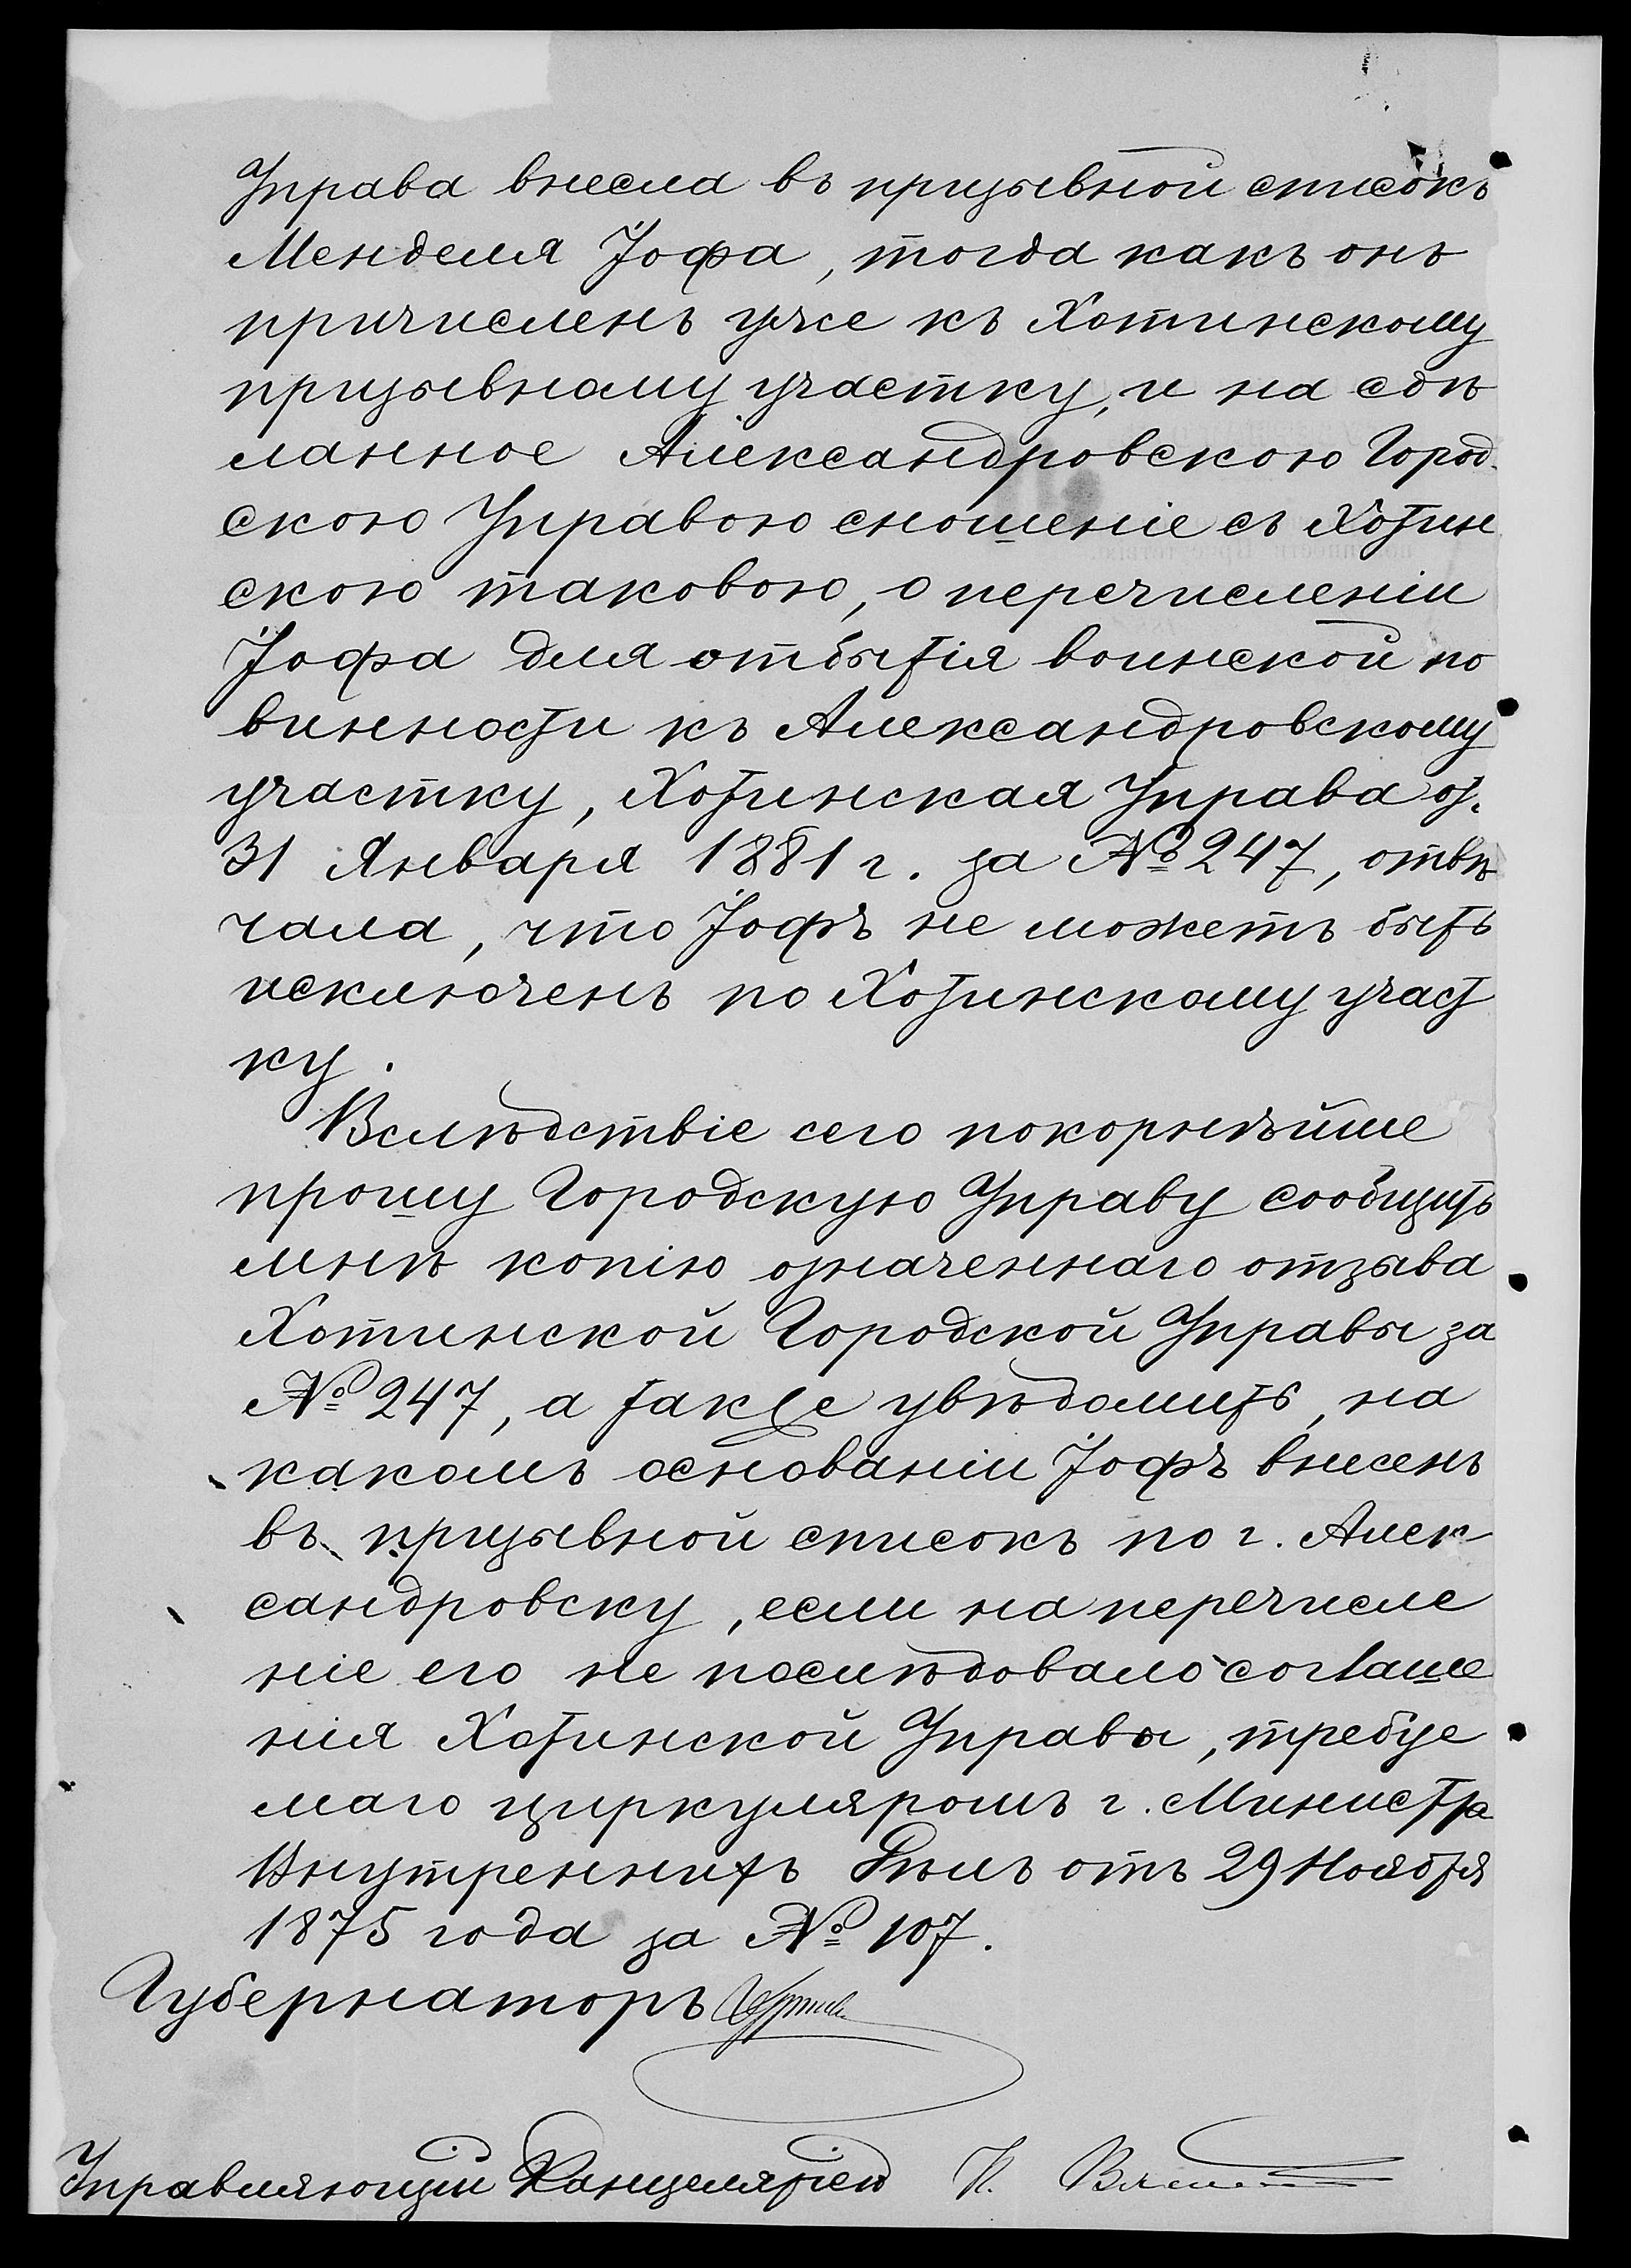 Управа внесла въ призывной списокъ
Менделя Іофа, тогда какъ онъ
причисленъ уже къ Хотинскому
призывному участку, и на сдѣ
ланное Александровскою Город-
скою Управою сношеніе съ Хотин
скою таковою, о перечисленіи
Іофа для отбытія воинской по
винности къ Александровскому
участку, Хотинская Управа от.
31 Января 1881 г. за № 247, отвѣ
чала, что Іофъ не можетъ быть
исключенъ по Хотинскому участ
ку.
Вслѣдствіе сего покорнѣйше
прошу Городскую Управу сообщить
мнѣ копію означеннаго отзыва
Хотинской Городской Управы за
№ 247, а также увѣдомить, на
какомъ основаніи Іофъ внесенъ
въ призывной списокъ по г. Алек-
сандровску, если на перечисле
ніе его не послѣдовало соглаше
нія Хотинской Управы, требуе
маго циркуляромъ г. Министра
Внутреннихъ Дѣлъ отъ 29 Ноября
1875 года за № 107.
Губернаторъ
Управляющій Канцеляріею